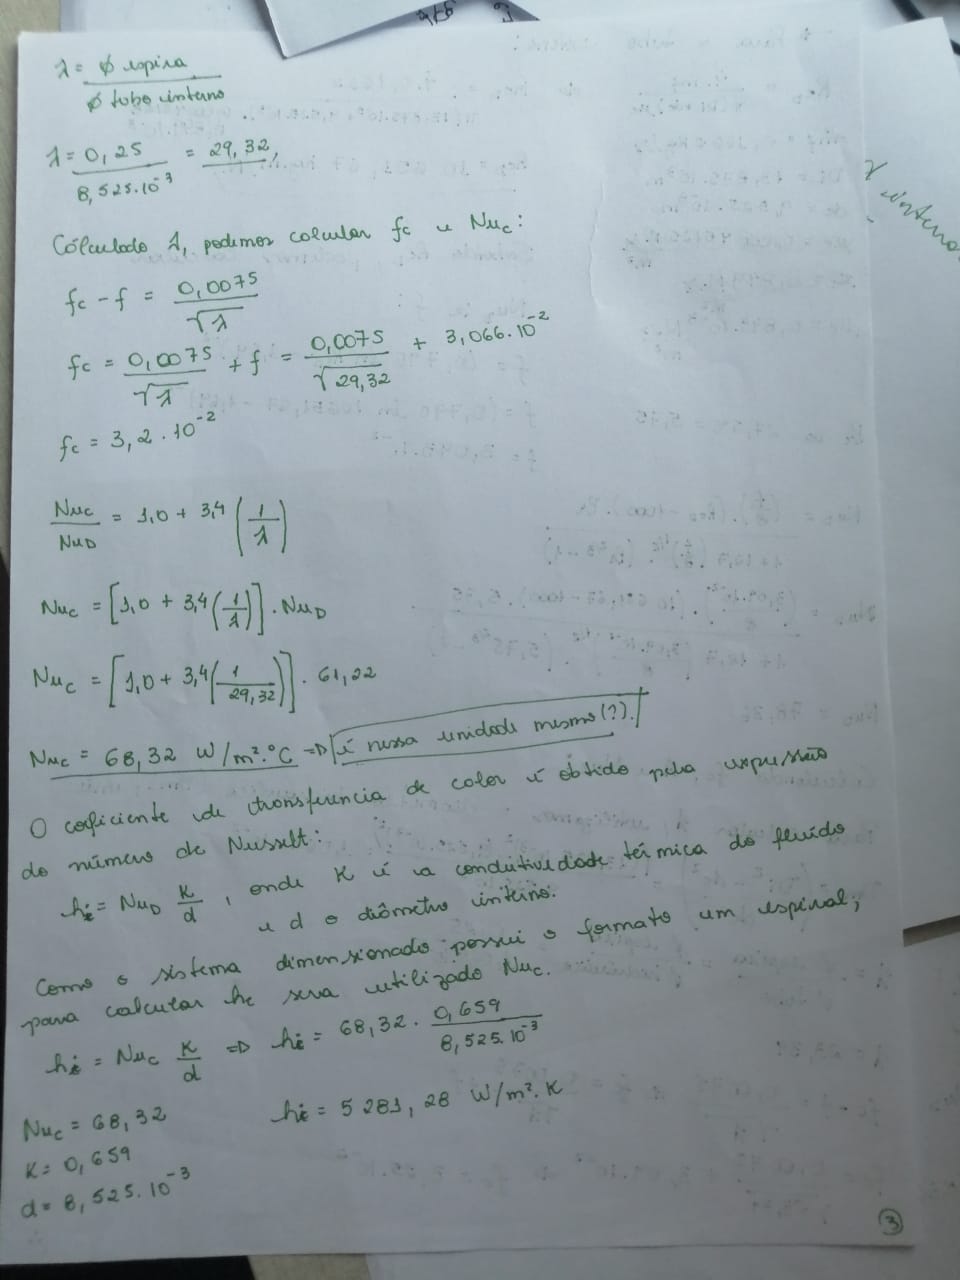 λ = ϕ espira / ϕ tubo interno
λ = 0,25 / 8,525.10⁻³ = 29,32
Cálculado λ, podemos calcular fc e Nuc:
fc - f = 0,0075 / √λ
fc = 0,0075 / √λ + f = 0,0075 / √29,32 + 3,066.10⁻²
fc = 3,2.10⁻²
Nuc / NuD = 1,0 + 3,4 (1/λ)
Nuc = [1,0 + 3,4 (1/λ)] . NuD
Nuc = [1,0 + 3,4 (1/29,32)] . 61,22
Nuc = 68,32 W/m².°C => é nessa unidade mesmo(?).
O coeficiente de transferencia de calor é obtido pela expressão
do número de Nusselt:
hi = NuD K/d , onde K é a condutividade térmica do fluído
e d o diâmetro interno.
Como o sistema dimensionado possui o formato um espiral;
para calcular hc sera utilizado Nuc.
hi = Nuc K/d => hi = 68,32 . 0,659 / 8,525.10⁻³
Nuc = 68,32
hi = 5281,28 W/m².K
K = 0,659
d = 8,525.10⁻³
3
interno